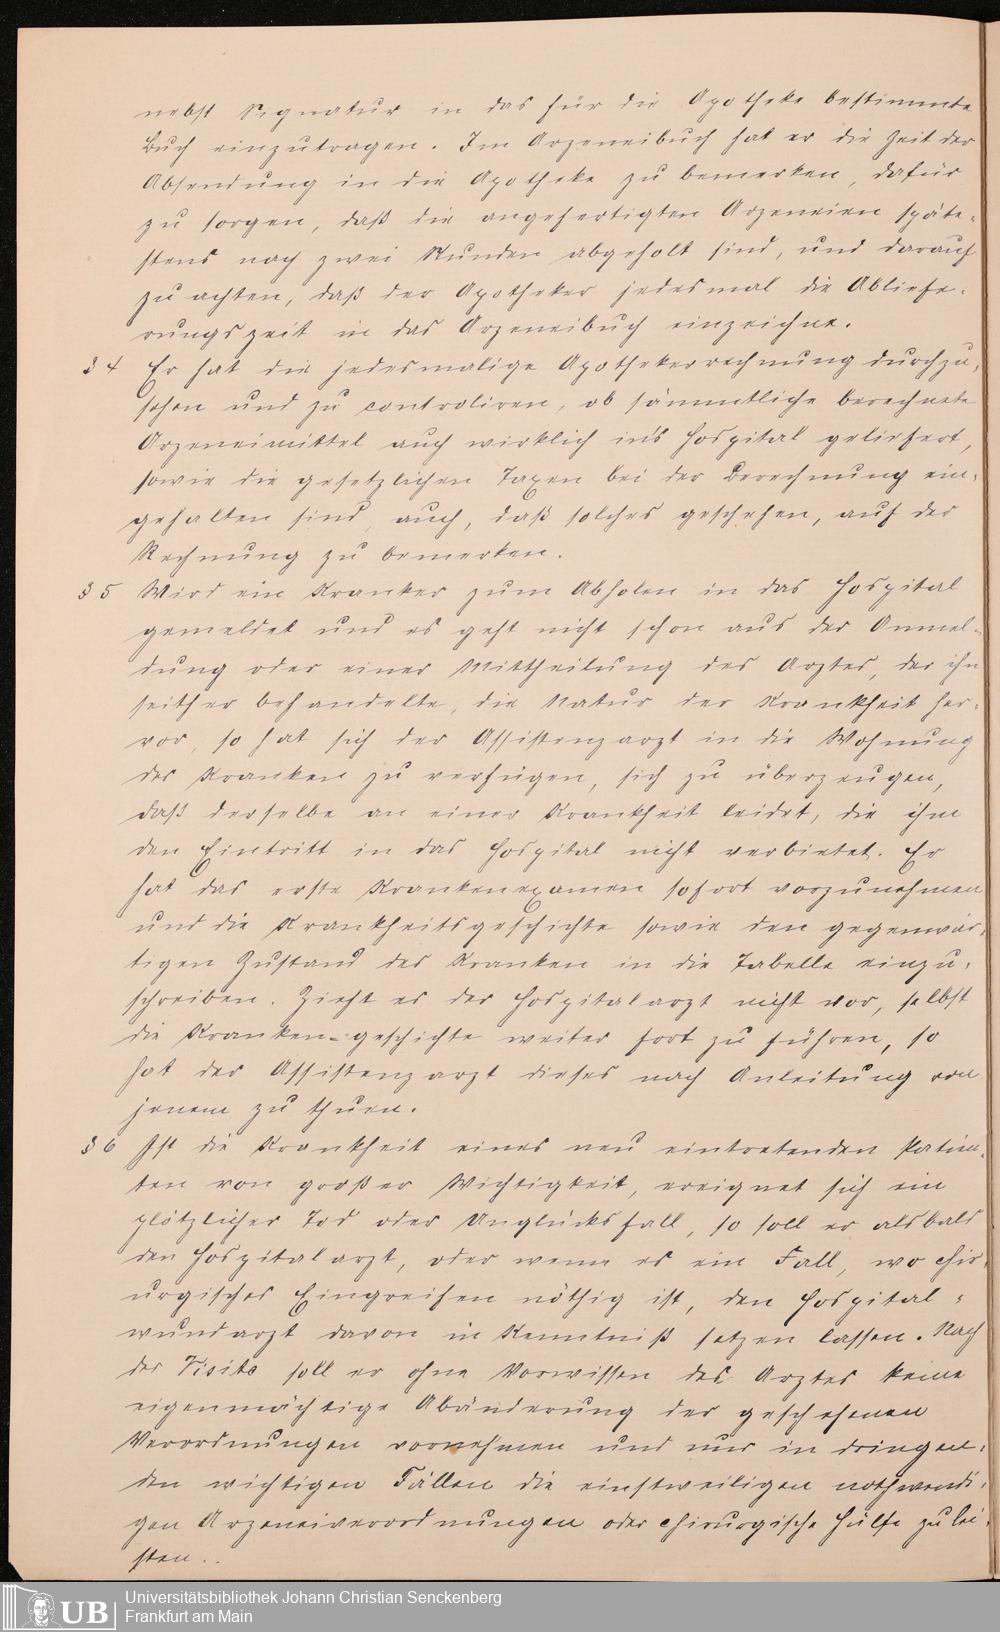 nebst Signatur in das für die Apotheke bestimmte
Buch einzutragen. Im Arzeneibuch hat er die Zeit der
Absendung in die Apotheke zu bemerken, dafür
zu sorgen, daß die angefertigten Arzeneien späte-
stens nach zwei Stunden abgeholt sind, und darauf
zu achten, daß der Apotheker jedesmal die Abliefe-
rungszeit in das Arzeneibuch einzeichne.
§ 4 Er hat die jedesmalige Apothekerrechnung durchzu-
sehen und zu controliren, ob sämmtliche berechnete
Arzeneimittel auch wirklich in's Hospital geliefert,
sowie die gesetzlichen Taxen bei der Berechnung ein-
gehalten sind, auch, daß solches geschehen, auf der
Rechnung zu bemerken.
§ 5 Wird ein Kranker zum Abholen in das Hospital
gemeldet und es geht nicht schon aus der Anmel-
dung oder einer Mittheilung des Arztes, der ihn
seither behandelte, die Natur der Krankheit her-
vor, so hat sich der Assistenzarzt in die Wohnung
des Kranken zu verfügen, sich zu überzeugen,
daß derselbe an einer Krankheit leidet, die ihm
den Eintritt in das Hospital nicht verbietet. Er
hat das erste Krankenexamen sofort vorzunehmen
und die Krankheitsgeschichte sowie den gegenwär-
tigen Zustand des Kranken in die Tabelle einzu-
schreiben. Zieht es der Hospitalarzt nicht vor, selbst
die Kranken-geschichte weiter fort zu führen, so
hat der Assistenzarzt dieses nach Anleitung von
jenem zu thuen.
§ 6 Ist die Krankheit eines neu eintretenden Patien-
ten von großer Wichtigkeit, ereignet sich ein
plötzlicher Tod oder Unglücksfall, so soll er alsbald
den Hospitalarzt, oder wenn es ein Fall, wo chir-
urgisches Eingreifen nöthig ist, den Hospital-
wundarzt davon in Kenntniß setzen lassen. Nach
der Visite soll er ohne Vorwissen des Arztes keine
eigenmächtige Abänderung der geschehenen
Verordnungen vornehmen und nur in dringen-
den wichtigen Fällen die einstweiligen nothwendi-
gen Arzeneiverordnungen oder chirurgische Hülfe zu lei-
sten.
UB
Universitätsbibliothek Johann Christian Senckenberg
Frankfurt am Main